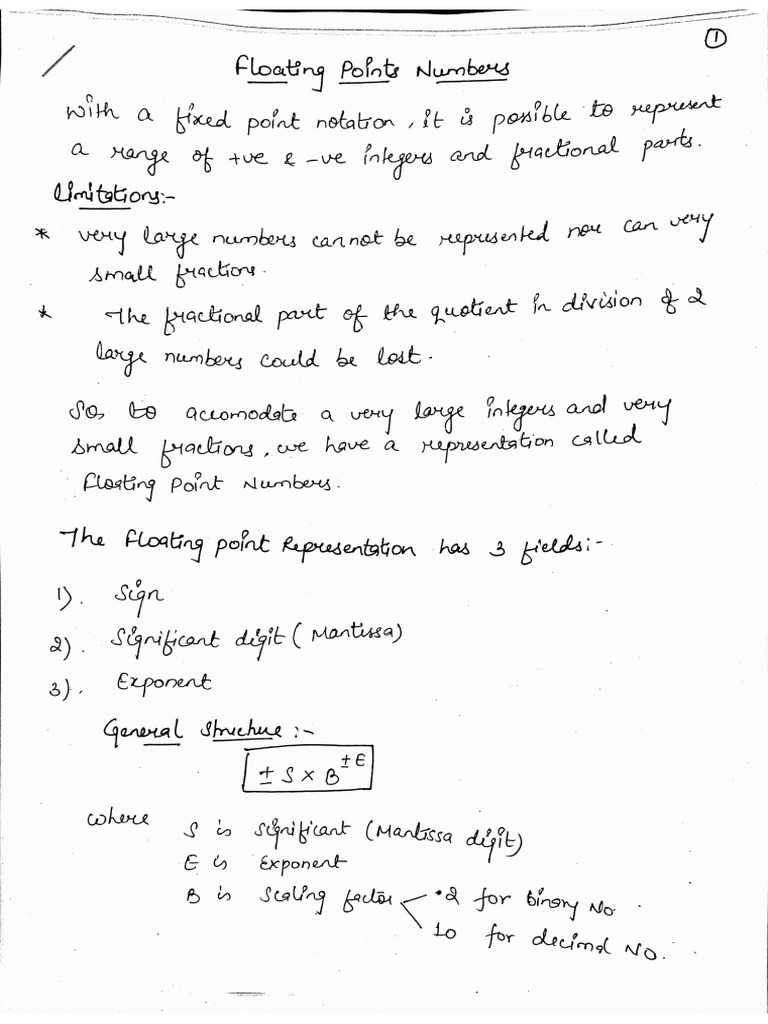 ①
Floating Points Numbers
With a fixed point notation, it is possible to represent
a range of +ve & -ve integers and fractional parts.
Limitations:-
* very large numbers cannot be represented nor can very
small fractions.
* The fractional part of the quotient in division of 2
large numbers could be lost.
So, to accomodate a very large integers and very
small fractions, we have a representation called
Floating Point Numbers.
The Floating point Representation has 3 fields:-
1). Sign
2). Significant digit (Mantissa)
3). Exponent
General Structure:-
± S × B^±E
where
S is Significant (Mantissa digit)
E is Exponent
B is Scaling factor < 2 for binary No.
10 for decimal NO.